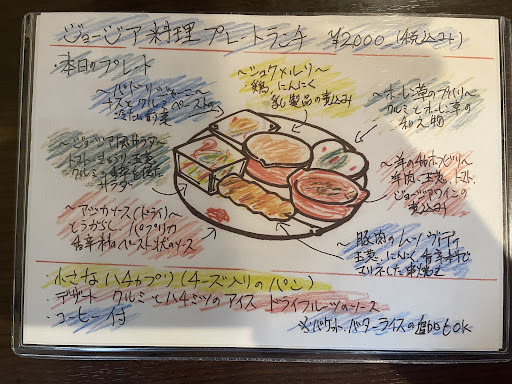 ジョージア料理プレートランチ ¥2000 (税込み)
・本日のプレート
〜シュクメルリ〜
鶏、にんにく
乳製品の煮込み
ナスとクルミペーストの
冷たい前菜
〜ほうれん草のプハリ〜
クルミとほうれん草の
和え物
〜ジョージア風サラダ〜
トマト、きゅうり、玉ねぎ
クルミの
サラダ
羊肉、玉ねぎ、トマト、
ジョージアワインの
煮込み
〜アジカソース(ドライ)〜
とうがらし、パプリカ
香辛料のペースト状のソース
〜豚肉のムツヴァディ
玉ねぎ、にんにく、香辛料で
マリネした串焼き
小さなハチャプリ(チーズ入りのパン)
・デザート クルミとハチミツのアイス ドライフルーツのソース
・コーヒー付
※バゲット、バターライスの追加もOK